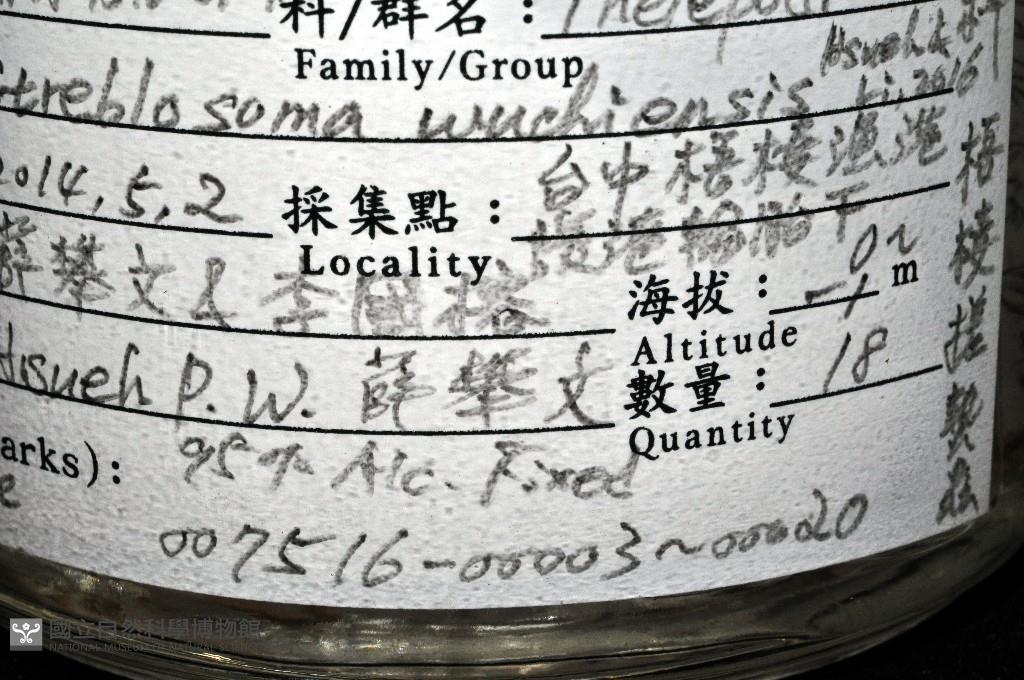 科/群名：
Family/Group
Hsueh &
Li, 2016
streblosoma wuchiensis
2014, 5, 2 採集點： 台中梧棲漁港
Locality
薛攀文 & 李國榕
海拔： 0~-1 m
Altitude
Hsueh P. W. 薛攀文
數量： 18
Quantity
arks): 95% Alc. Fixed
007516-00003~00020
梧棲
國立自然科學博物館
NATIONAL MUSEUM OF NATURAL